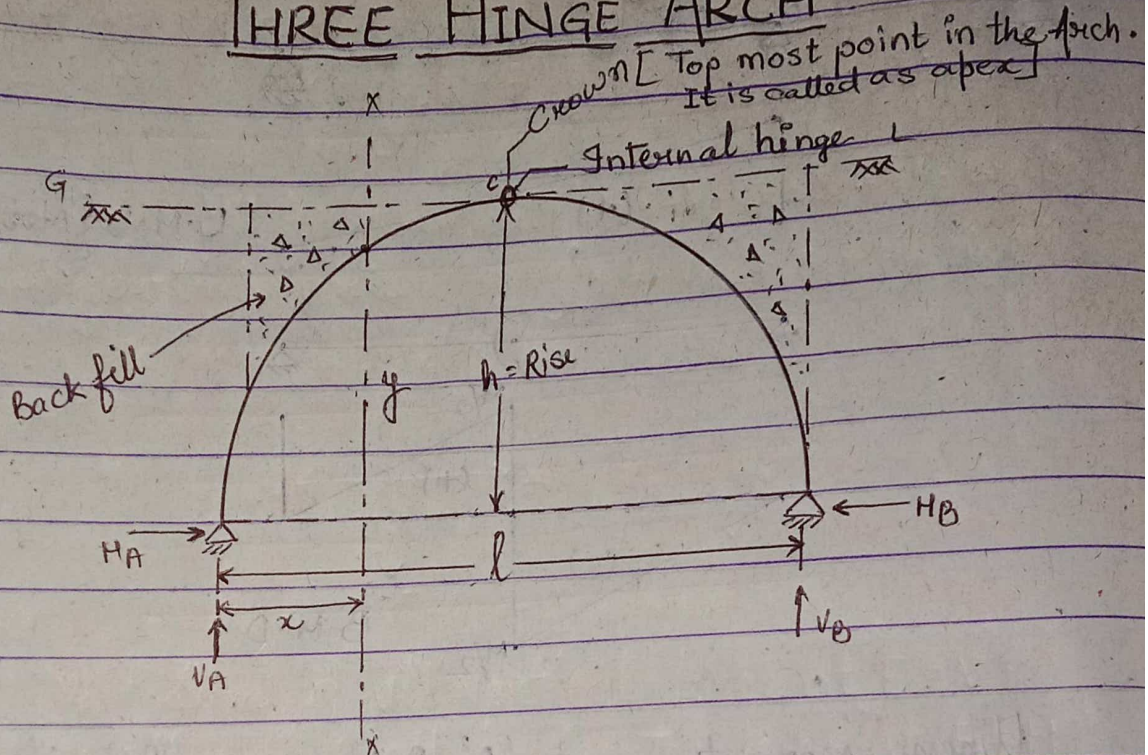 THREE HINGE ARCH
Crown [Top most point in the Arch.
It is called as apex]
X
Internal hinge L
G
C
Back fill
y
h = Rise
HA
HB
l
x
VA
VB
X